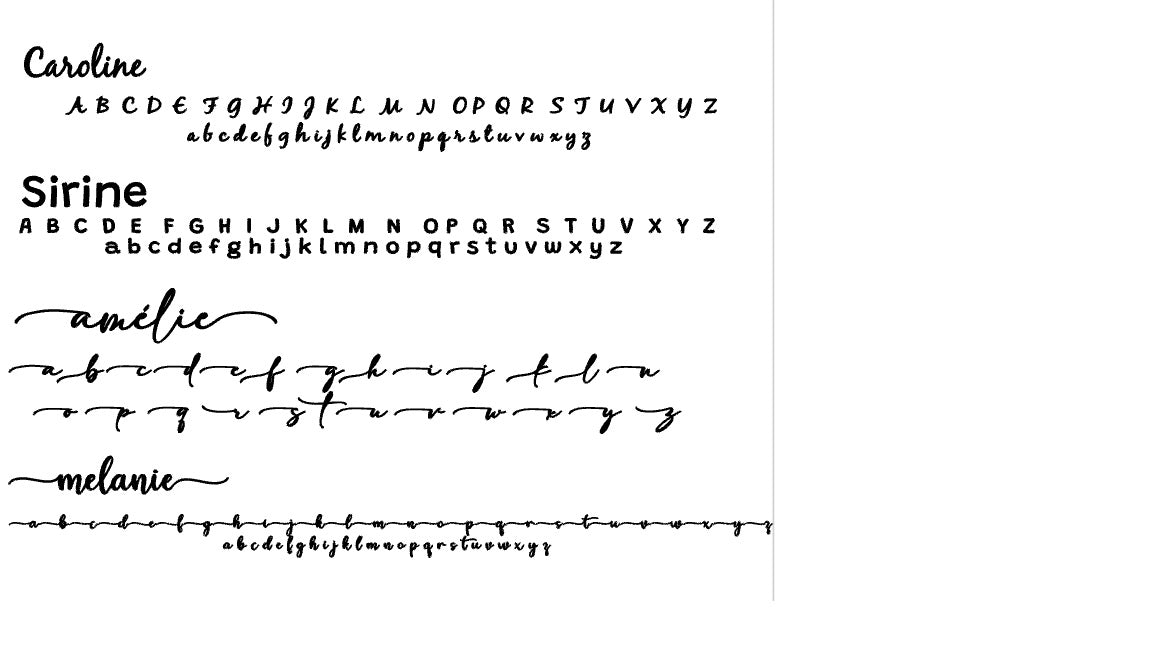 Caroline
A B C D E F G H I J K L M N O P Q R S T U V X Y Z
a b c d e f g h i j k l m n o p q r s t u v w x y z
Sirine
A B C D E F G H I J K L M N O P Q R S T U V X Y Z
a b c d e f g h i j k l m n o p q r s t u v w x y z
amélie
a b c d e f g h i j k l n
o p q r s t u v w x y z
melanie
a b c d e f g h i j k l m n o p q r s t u v w x y z
a b c d e f g h i j k l m n o p q r s t u v w x y z